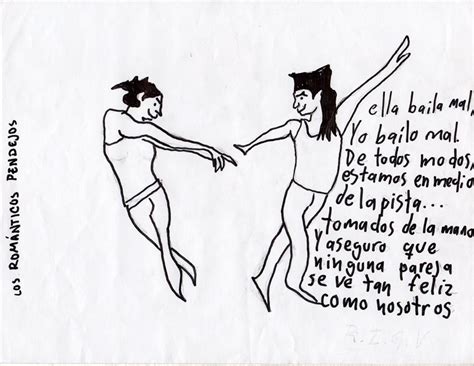 LOS ROMÁNTICOS PENDEJOS
ella baila mal,
Yo bailo mal.
De todos modos,
estamos en medio
de la pista...
tomados de la mano
Y aseguro que
ninguna pareja
se ve tan feliz
como nosotros